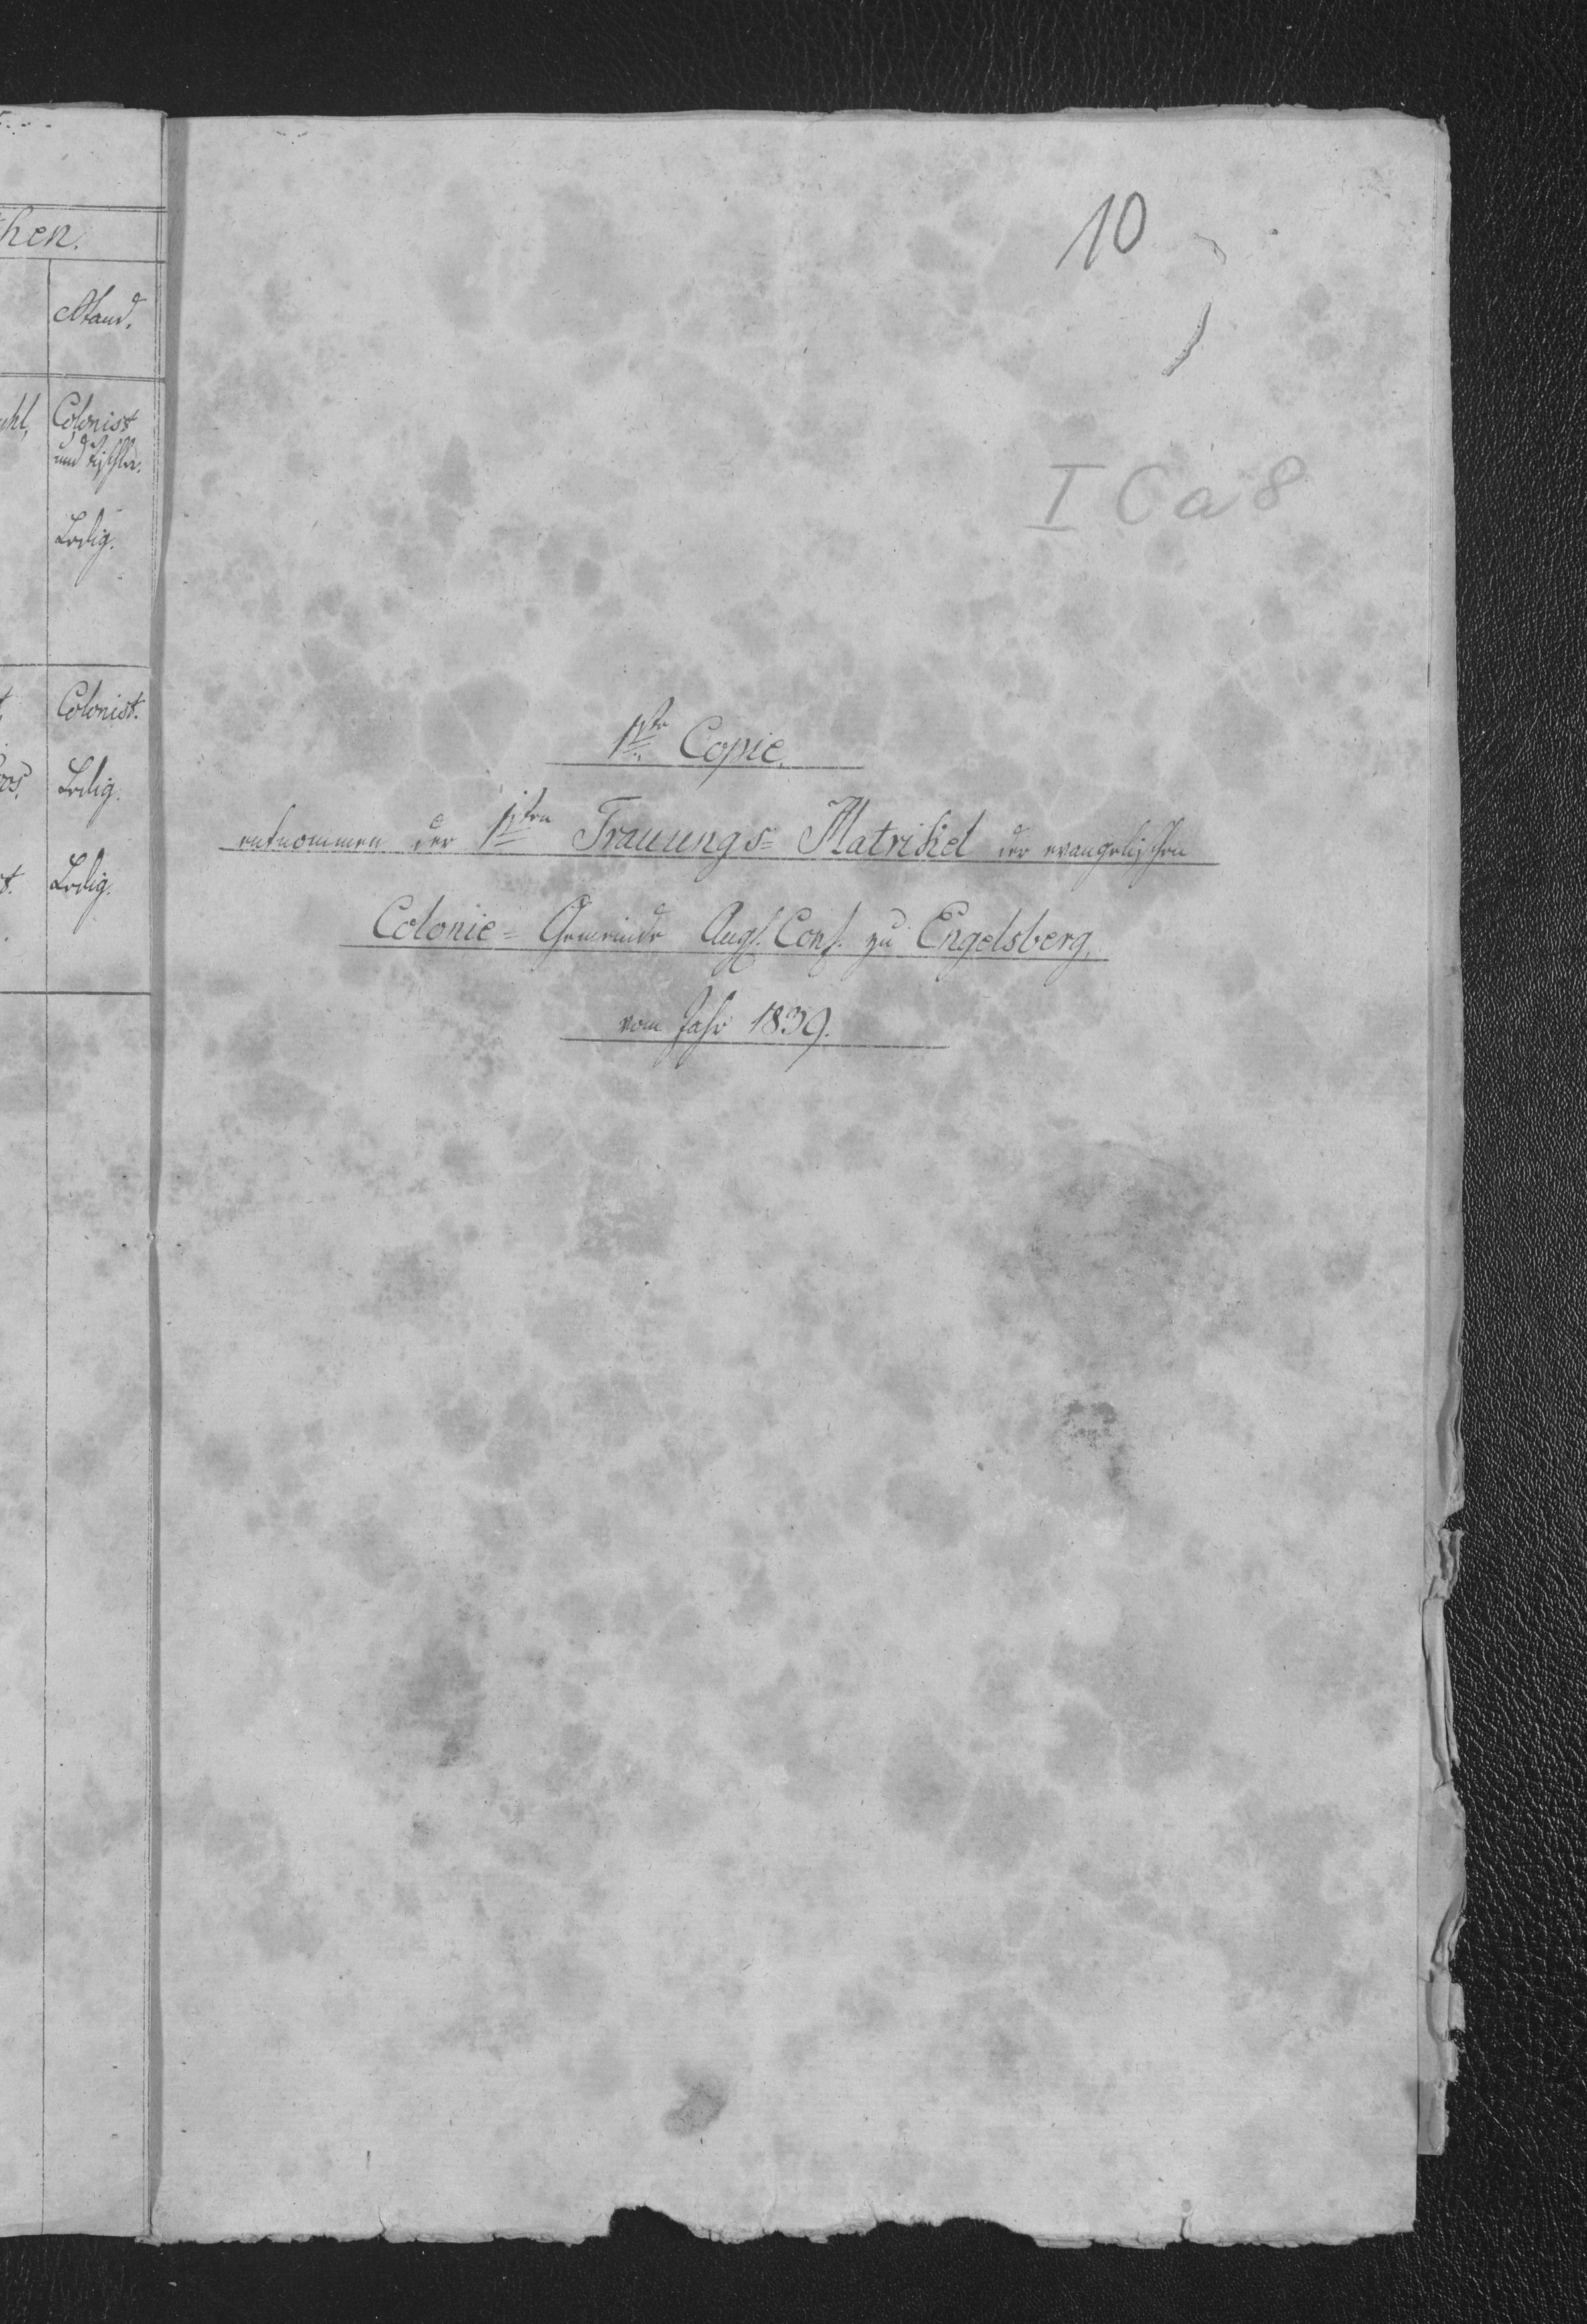 hen.
Stand.
Colonist
und Tischler.
Ledig.
Colonist.
Ledig.
Ledig.
10
I C a 8
1te Copie,
entnommen der 1sten Trauungs= Matrikel der evangelischen
Colonie= Gemeinde Augs. Conf. zu Engelsberg,
vom Jahr 1839.